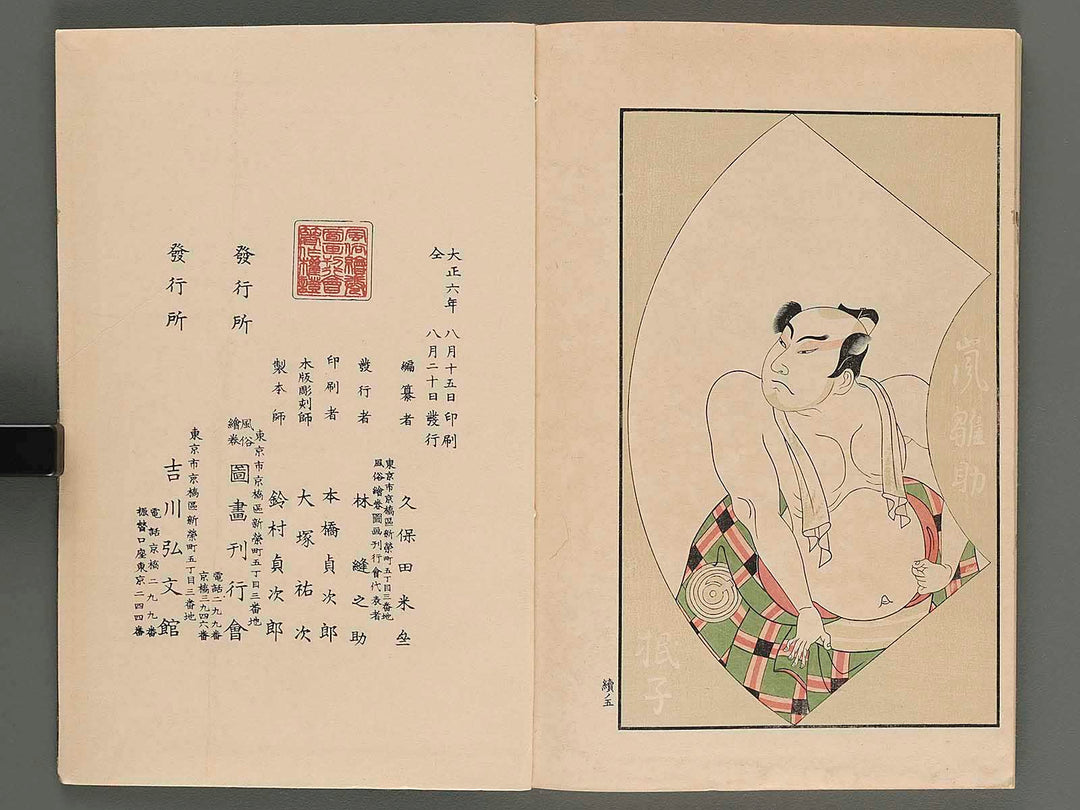 嵐雛助
眠子
續ノ五
大正六年八月十五日印刷
仝　八月二十日發行
編纂者　久保田米𠆻
東京市京橋區新榮町五丁目三番地
風俗繪巻圖画刊行會代表者
發行者　林縫之助
印刷者　本橋貞次郎
木版彫刻師　大塚祐次
製本師　鈴村貞次郎
東京市京橋區新榮町五丁目三番地
發行所　風俗繪巻圖畫刊行會
電話二九九番
京橋三九四六番
東京市京橋區新榮町五丁目三番地
發行所　吉川弘文館
電話京橋二九九番
振替口座東京二四四番